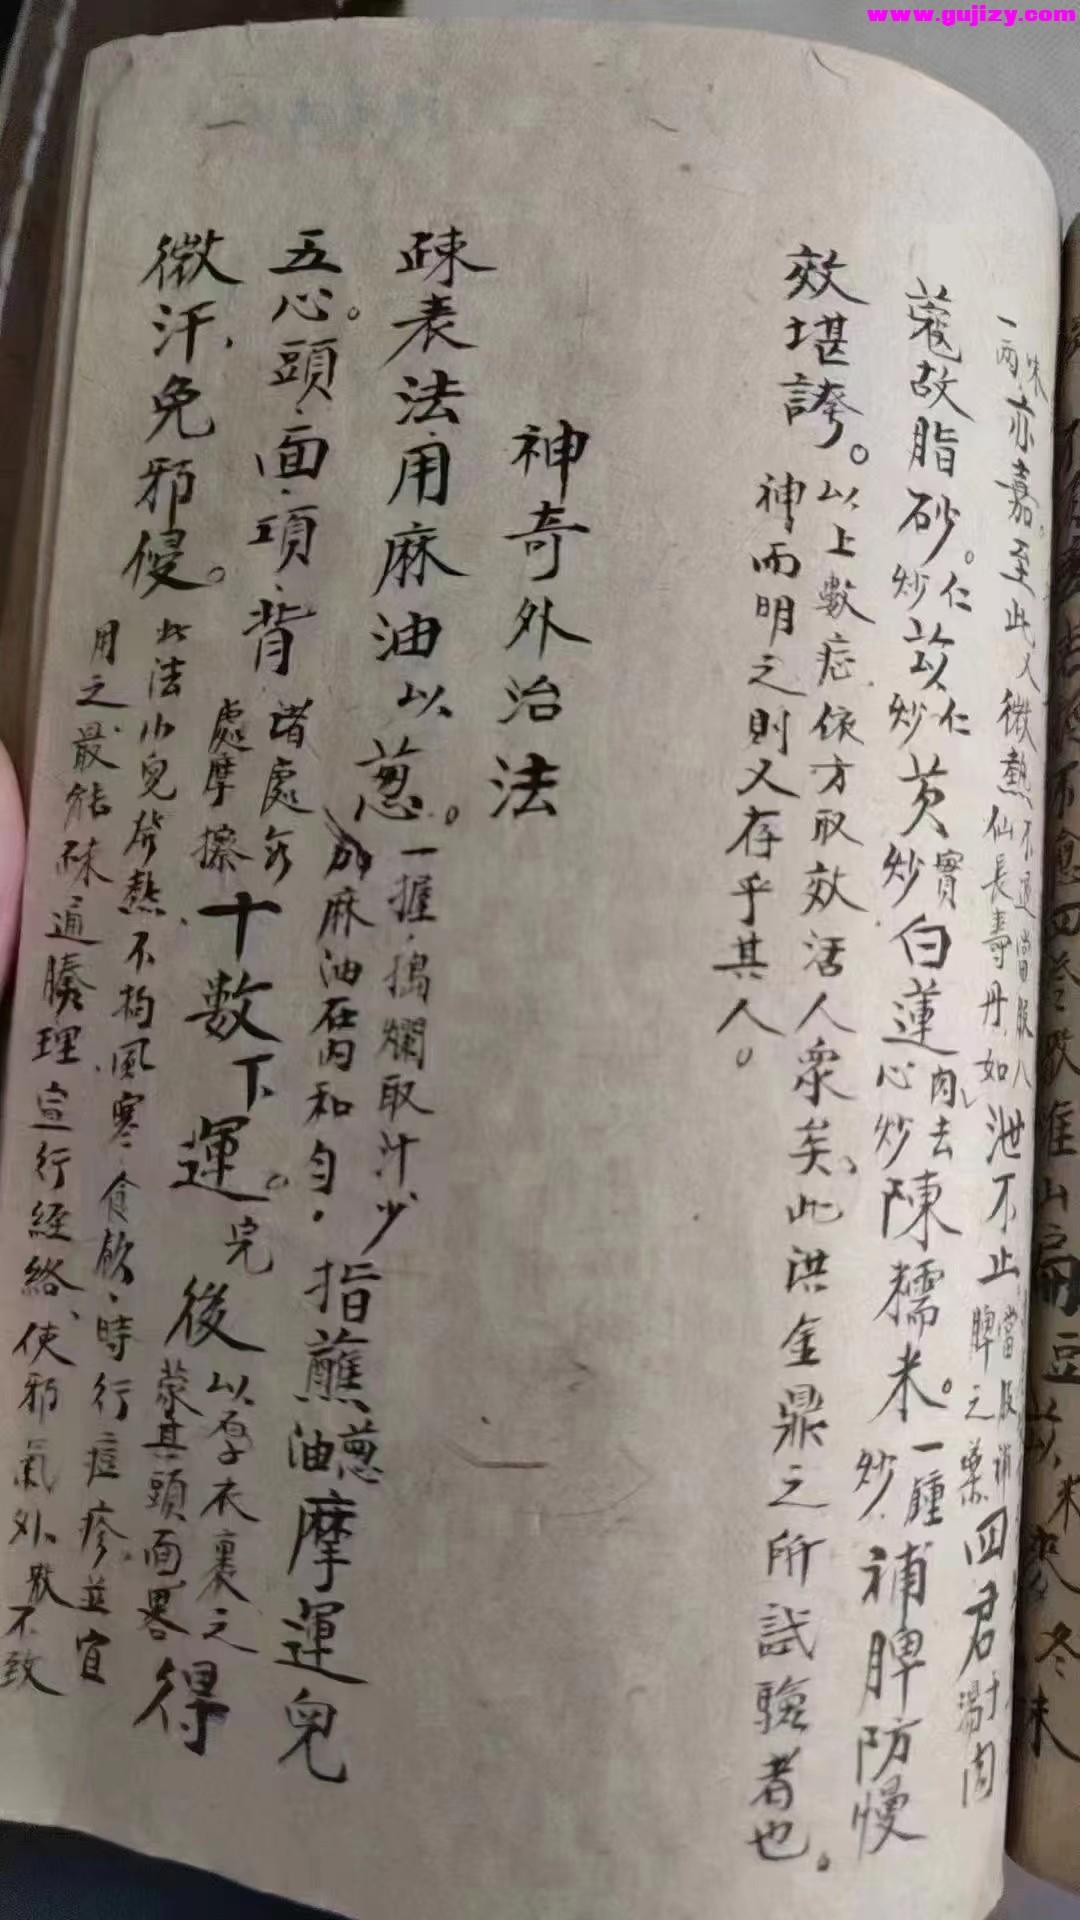 www.gujizy.com
一味兩亦嘉。至此人微熱不退當服八仙長壽丹、如泄不止當服補脾之藥四君湯肉
蔻故脂砂。仁炒苡仁炒芡實炒白蓮肉、去心炒陳糯米。一鍾炒補脾防慢
效堪誇。以上數症依方取效活人衆矣、此洪金鼎之所試驗者也。
神而明之則又存乎其人。
神奇外治法
疎表法用麻油以葱。一握、搗爛取汁少加麻油在內和勻、指蘸葱油摩運兒
五心。頭、面、項、背諸處各處摩擦十數下運。完後以厚衣裹之蒙其頭面畧得
微汗、免邪侵。此法小兒發熱、不拘風寒食飲、時行痘疹、並宜
用之、最能疎通腠理宣行經絡、使邪氣外散不致